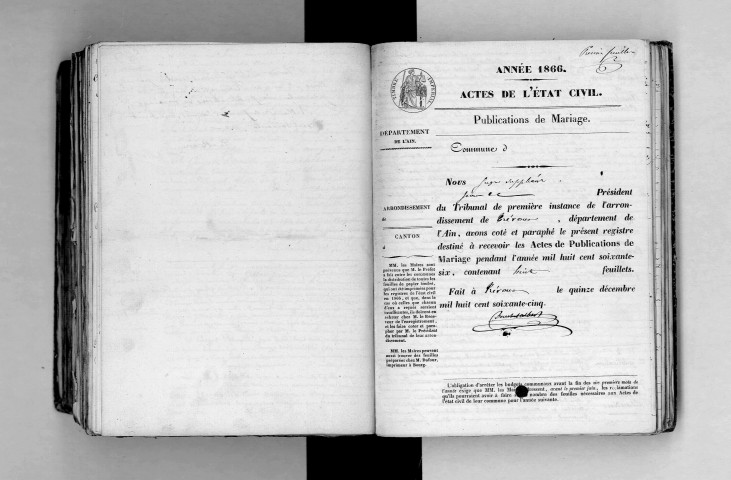 Première feuille
ANNÉE 1866.
ACTES DE L'ÉTAT CIVIL.
Publications de Mariage.
DÉPARTEMENT
DE L'AIN.
Commune d
ARRONDISSEMENT
de
CANTON
d
MM. les Maires sont
prévenus que M. le Préfet
a fait entre les communes
la distribution de toutes les
feuilles de papier timbré,
qui ont été imprimées pour
les registres de l'état civil
en 1866, et que, dans le
cas où celles que chacun
d'eux a reçues seraient
insuffisantes, ils doivent en
acheter chez M. le Rece-
veur de l'enregistrement,
et les faire coter et para-
pher par M. le Président
du tribunal de leur arron-
dissement.
MM. les Maires peuvent
aussi trouver des feuilles
préparées chez M. Dufour,
imprimeur à Bourg.
Nous Juge suppléant
Président
du Tribunal de première instance de l'arron-
dissement de Trévoux, département de
l'Ain, avons coté et paraphé le présent registre
destiné à recevoir les Actes de Publications de
Mariage pendant l'année mil huit cent soixante-
six, contenant huit feuillets.
Fait à Trévoux le quinze décembre
mil huit cent soixante-cinq.
L'obligation d'arrêter les budgets communaux avant la fin des six premiers mois de
l'année exige que MM. les Maires adressent, avant le premier juin, les réclamations
qu'ils pourraient avoir à faire sur le nombre des feuilles nécessaires aux Actes de
l'état civil de leur commune pour l'année suivante.